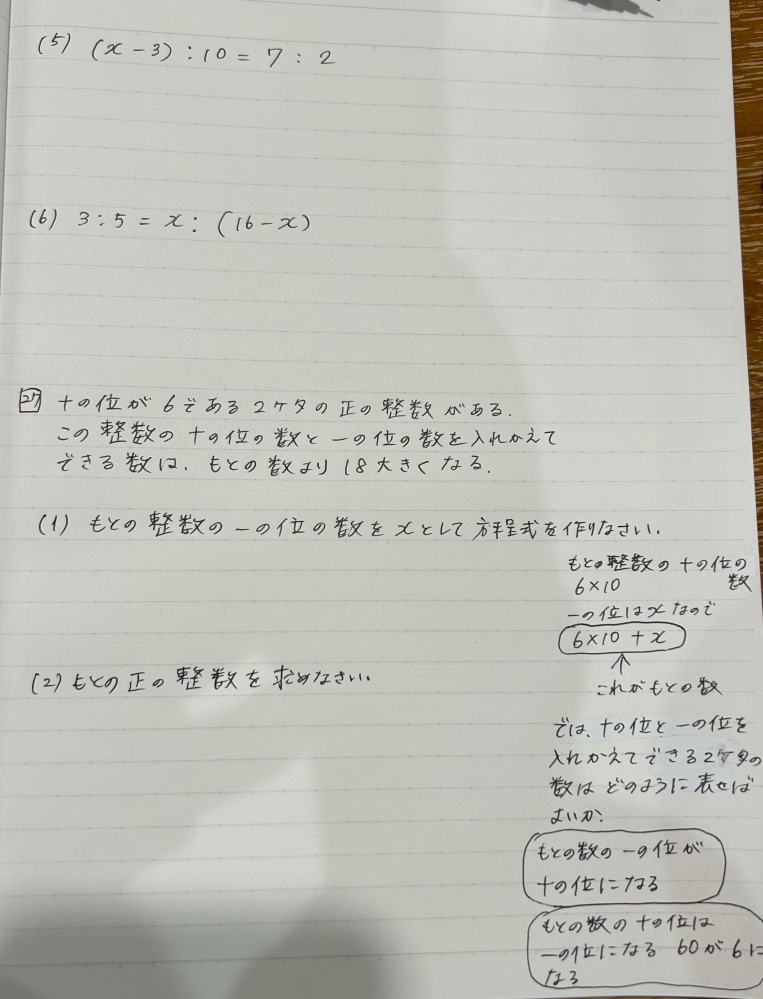 (5) (x-3):10=7:2
(6) 3:5=x:(16-x)
27 十の位が6である2ケタの正の整数がある.
この整数の十の位の数と一の位の数を入れかえて
できる数は、もとの数より18大きくなる.
(1) もとの整数の一の位の数をxとして方程式を作りなさい.
もとの整数の十の位の
6×10 数
一の位はxなので
6×10+x
↑
これがもとの数
(2) もとの正の整数を求めなさい.
では、十の位と一の位を
入れかえてできる2ケタの
数はどのように表せば
よいか?
もとの数の一の位が
十の位になる
もとの数の十の位は
一の位になる 60が6に
なる